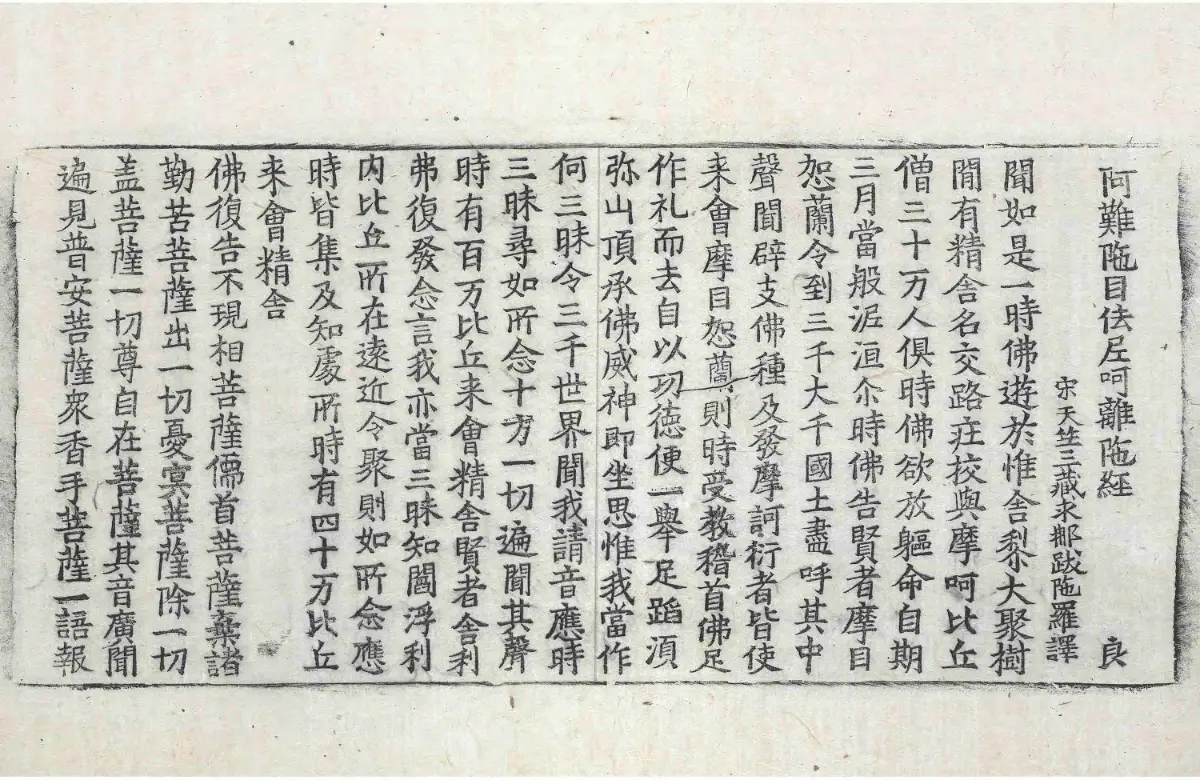 阿難陁目佉尼呵離陁經　良
宋天竺三藏求那跋陁羅譯
聞如是一時佛遊於惟舍黎大聚樹
間有精舍名交路莊校與摩呵比丘
僧三十万人俱時佛欲放軀命自期
三月當般泥洹尒時佛告賢者摩目
恕蘭令到三千大千國土盡呼其中
聲聞辟支佛種及發摩訶衍者皆使
来會摩目恕蘭則時受教稽首佛足
作礼而去自以功德便一舉足蹈湏
弥山頂承佛威神即坐思惟我當作
何三昧令三千世界聞我請音應時
三昧尋如所念十方一切遍聞其聲
時有百万比丘来會精舍賢者舍利
弗復發念言我亦當三昧知閻浮利
内比丘所在遠近令聚則如所念應
時皆集及知處所時有四十万比丘
来會精舍
佛復告不現相菩薩儒首菩薩棄諸
勤苦菩薩出一切憂冥菩薩除一切
盖菩薩一切尊自在菩薩其音廣聞
遍見普安菩薩衆香手菩薩一語報